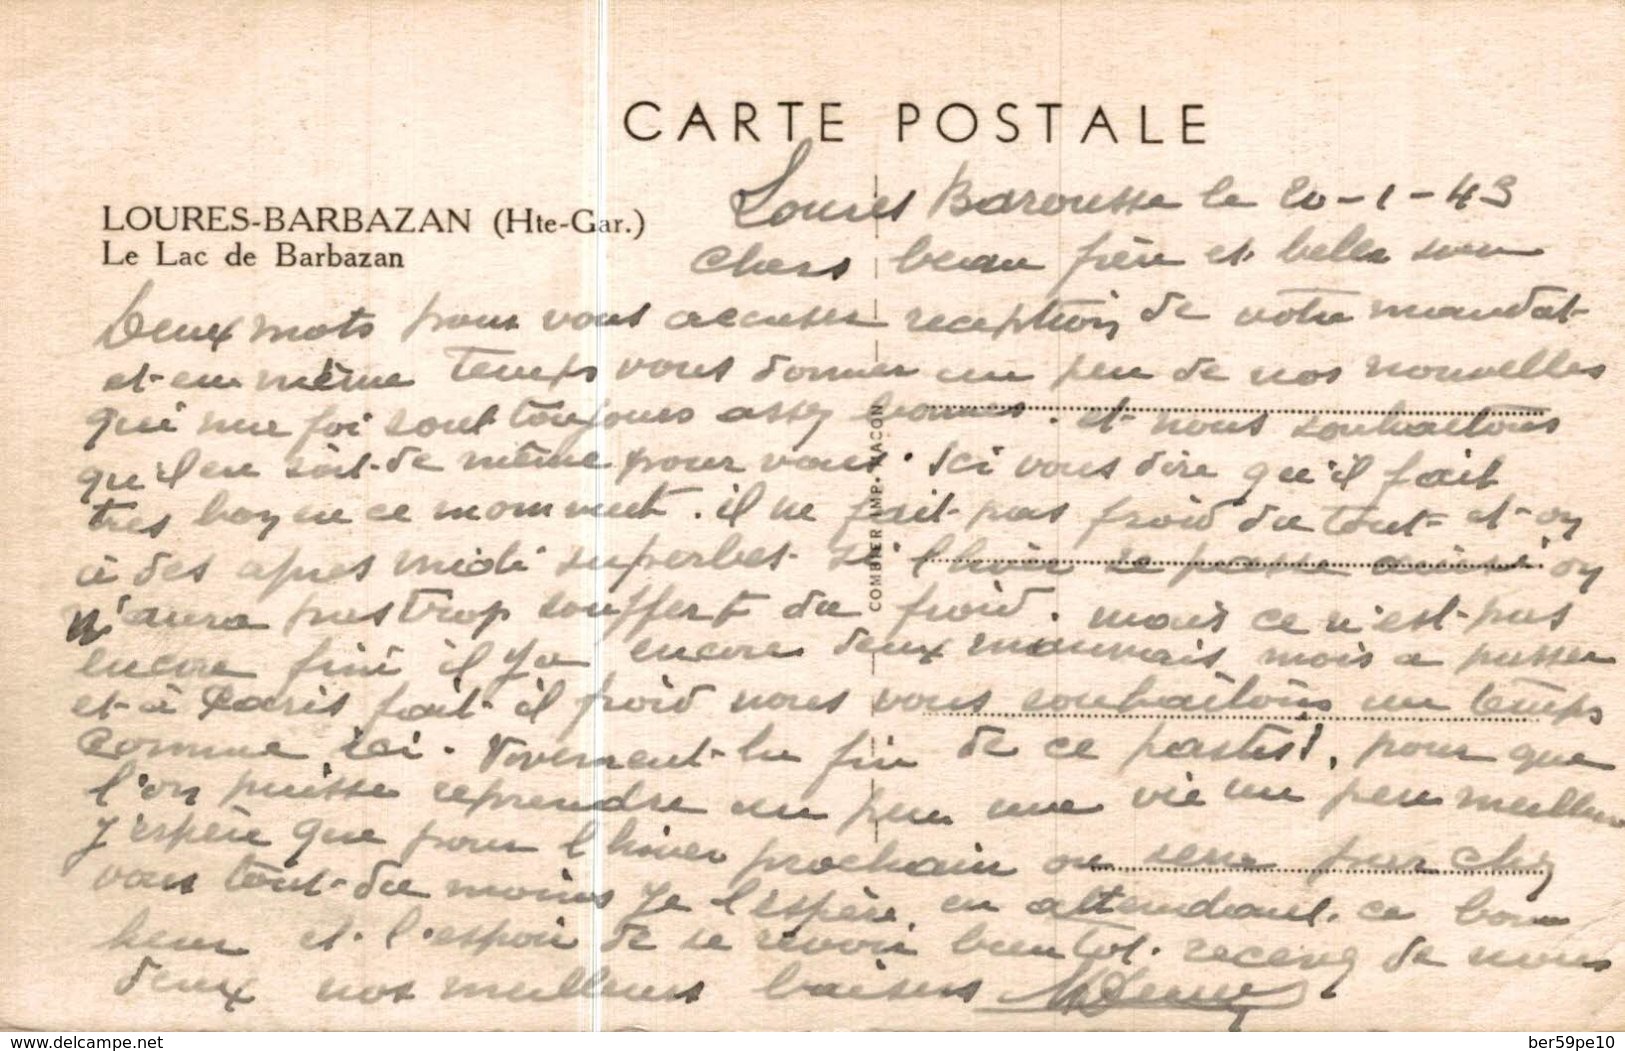 CARTE POSTALE
LOURES-BARBAZAN (Hte-Gar.)
Le Lac de Barbazan
COMBIER IMP. MACON
Loures Barousse le 20-1-43
Chers beau frère et belle sœur
Deux mots pour vous accuser reception de votre mandat
et en même temps vous donner un peu de nos nouvelles
qui ma foi sont toujours assez bonnes. et nous souhaitons
qu'il en soit de même pour vous. Ici vous dire qu'il fait
tres bon en ce momment. il ne fait pas froid du tout et on
à des apres midi superbes si l'hiver se passe ainsi on
n'aura pas trop souffert du froid. mais ce n'est pas
encore fini il y a encore deux mauvais mois a passer
et à Paris fait il froid nous vous souhaitons un temps
comme ici. Vivement la fin de ce pastis!, pour que
l'on puisse reprendre un peu une vie un peu meilleur
J'espère que pour l'hiver prochain on sera par chez
vous tout du moins je l'espère, en attendant ce bon
heur et l'espoir de se revoir bientot. recevez de nous
deux nos meilleurs baisers
delcampe.net
ber59pe10